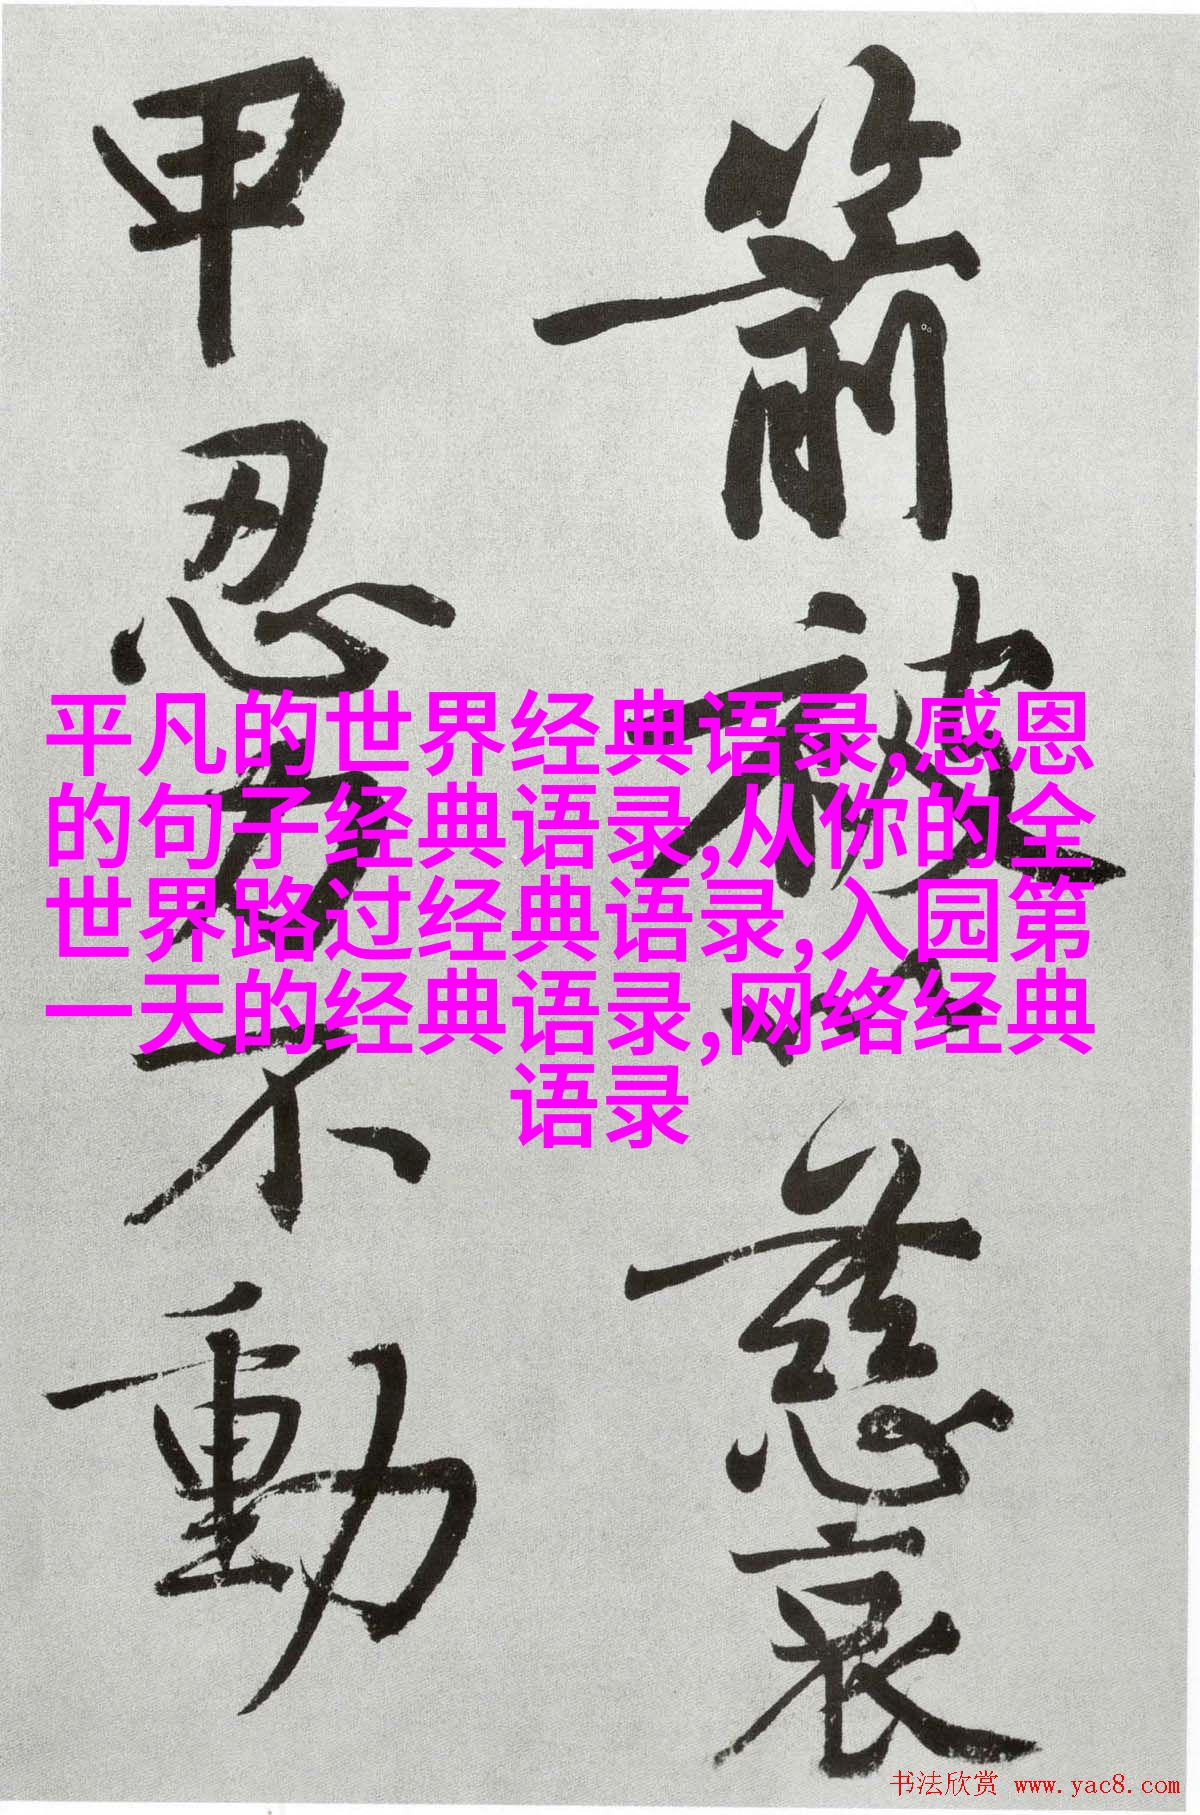 箭被以慈哀
甲忍力不動
平凡的世界经典语录,感恩
的句子经典语录,从你的全
世界路过经典语录,入园第
一天的经典语录,网络经典
语录
书法欣赏 www.yac8.com